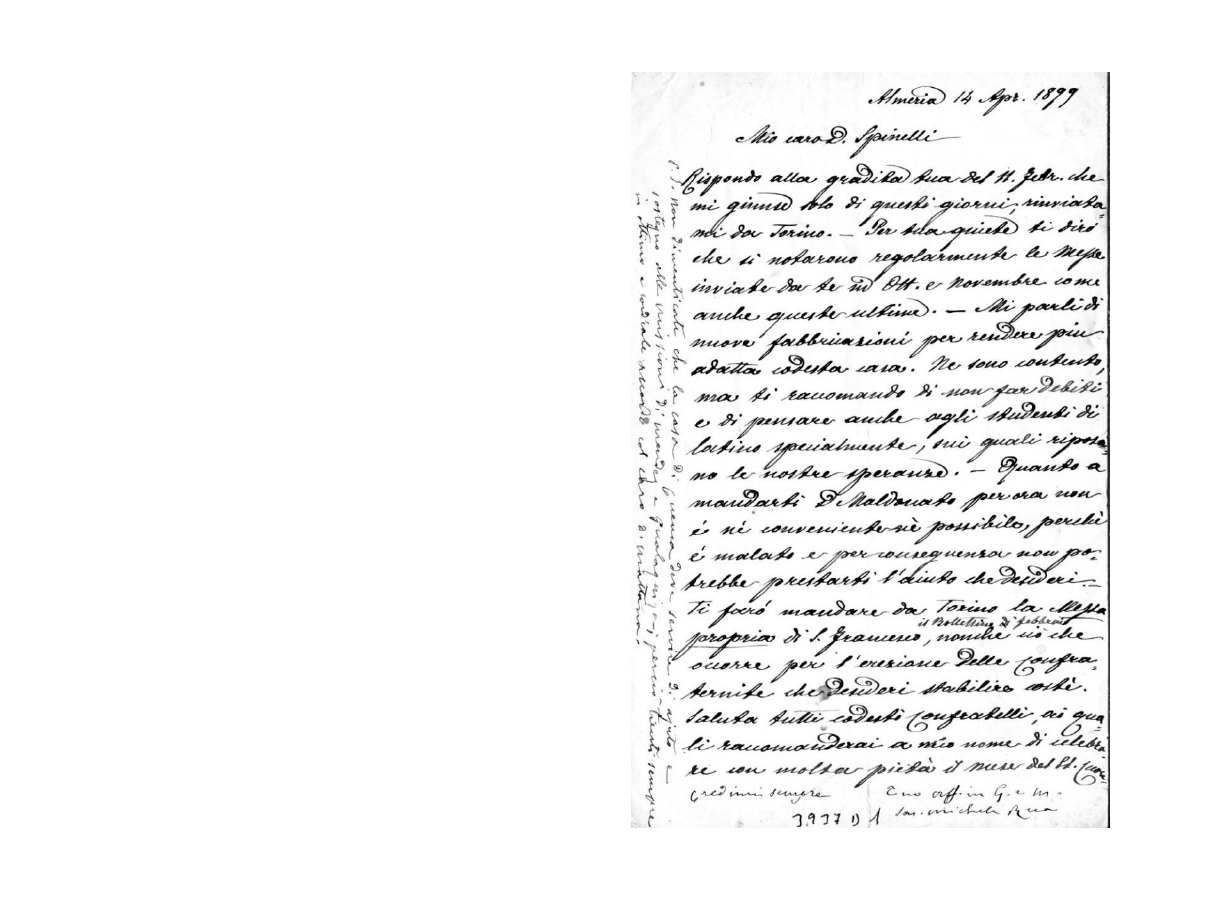 Almeria 14 Apr. 1899
Mio caro D. Spinelli
Rispondo alla gradita tua del 11. Febr. che
mi giunse solo di questi giorni, rinviata=
mi da Torino. — Per tua quiete ti dirò
che si notarono regolarmente le Messe
inviate da te in Ott. e Novembre come
anche queste ultime. — Mi parli di
nuove fabbricazioni per rendere più
adatta codesta casa. Ne sono contento,
ma ti racomando di non far debiti
e di pensare anche agli studenti di
latino specialmente, sui quali riposa=
no le nostre speranze. — Quanto a
mandarti D. Maldonato per ora non
é nè conveniente nè possibile, perchè
é malato e per conseguenza non po=
trebbe prestarti l'aiuto che desideri. —
Ti farò mandare da Torino la Messa
il Bollettino di febbraio
propria di S. Francesco, nonchè ciò che
occorre per l'erezione delle Confra=
ternite che desideri stabilire costì.
Saluta tutti codesti Confratelli, ai qua=
li racomanderai a mio nome di celebra=
re con molta pietà il mese del S. Cuore
Credimi sempre
Tuo aff. in G. e M.
Sac. Michele Rua
3937 D 1
P.S. Non dimenticate che la casa di Cuenca deve servire di aiuto e
sostegno alle missioni di Mendez e Gualaquiza; perciò tienti sempre
in ottimo e cordiale accordo col caro D. Mattana.